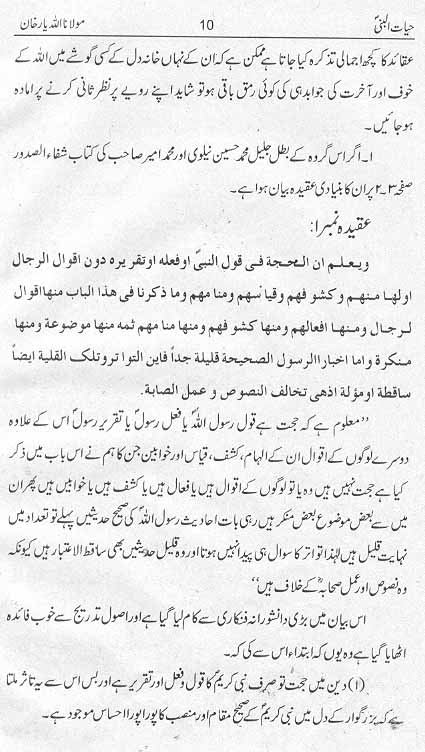 حیات النبیؐ 10 مولانا اللہ یار خان
عقائد کا کچھ اجمالی تذکرہ کیا جاتا ہے ممکن ہے کہ ان کے نہاں خانہ دل کے کسی گوشے میں اللہ کے
خوف اور آخرت کی جوابدہی کی کوئی رمق باقی ہو تو شاید اپنے رویے پر نظر ثانی کرنے پر امادہ
ہو جائیں۔
۱۔ اگر اس گروہ کے بطل جلیل محمد حسین نیلوی اور محمد امیر صاحب کی کتاب شفاء الصدور
صفحہ ۳۔۲ پر ان کا بنیادی عقیدہ بیان ہوا ہے۔
عقیدہ نمبر۱:
ویعلم ان الحجۃ فی قول النبیؐ اوفعلہ اوتقریرہ دون اقوال الرجال
اولھا منھم و کشوفھم وقیاسھم ومنامھم وما ذکرنا فی ھذا الباب منھا اقوال
لرجال ومنھا افعالھم ومنھا کشوفھم ومنھا منامھم ثمہ منھا موضوعۃ ومنھا
منکرۃ واما اخبار الرسول الصحیحۃ قلیلۃ جداً فاین التواتر وتلک القلیۃ ایضاً
ساقطۃ اومؤلۃ اذھی تخالف النصوص و عمل الصابۃ.
”معلوم ہے کہ حجت ہے قول رسول اللہؐ یا فعل رسولؐ یا تقریر رسولؐ اس کے علاوہ
دوسرے لوگوں کے اقوال ان کے الہام، کشف، قیاس اور خوابیں جن کا ہم نے اس باب میں ذکر
کیا ہے حجت نہیں ہیں وہ یا تو لوگوں کے اقوال ہیں یا فعال ہیں یا کشف ہیں یا خوابیں ہیں پھر ان
میں سے بعض موضوع بعض منکر ہیں رہی بات احادیث رسول اللہؐ کی صحیح حدیثیں پہلے تو تعداد میں
نہایت قلیل ہیں لہٰذا تواتر کا سوال ہی پیدا نہیں ہوتا اور وہ قلیل حدیثیں بھی ساقط الاعتبار ہیں کیونکہ
وہ نصوص اور عمل صحابہؓ کے خلاف ہیں“
اس بیان میں بڑی دانشورانہ فنکاری سے کام لیا گیا ہے اور اصول تدریج سے خوب فائدہ
اٹھایا گیا ہے وہ یوں کہ ابتداء اس سے کی کہ۔
(۱) دین میں حجت تو صرف نبی کریمؐ کا قول و فعل اور تقریر ہے اور بس اس سے یہ تاثر ملتا
ہے کہ بزرگوار کے دل میں نبی کریمؐ کے صحیح مقام اور منصب کا پورا پورا احساس موجود ہے۔